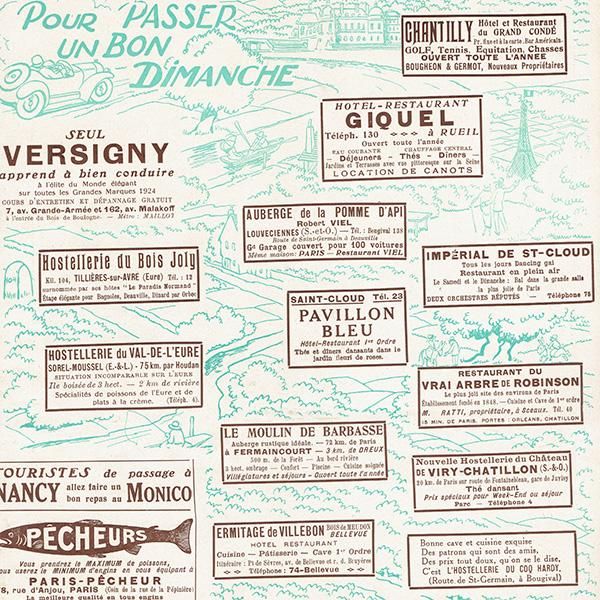 POUR PASSER
UN BON
DIMANCHE
CHANTILLY Hôtel et Restaurant
du GRAND CONDÉ
Pr. fixe et à la carte. Bar Américain.
GOLF, Tennis, Equitation, Chasses
OUVERT TOUTE L'ANNÉE
BOUGHEON & GERMOT, Nouveaux Propriétaires
HOTEL-RESTAURANT
GIQUEL
Téléph. 130 à RUEIL
Ouvert toute l'année
EAU COURANTE CHAUFFAGE CENTRAL
- Déjeuners - Thés - Diners -
Jardins et Terrasses avec vue pittoresque sur la Seine
LOCATION DE CANOTS
SEUL
VERSIGNY
apprend à bien conduire
à l'élite du Monde élégant
sur toutes les Grandes Marques 1924
COURS D'ENTRETIEN ET DÉPANNAGE GRATUIT
7, av. Grande-Armée et 162, av. Malakoff
à l'entrée du Bois de Boulogne. - Métro : MAILLOT
AUBERGE de la POMME D'API
Robert VIEL
LOUVECIENNES (S.-et-O.) — Tél. : Bougival 138
Route de Saint-Germain à Deauville
Gd Garage couvert pour 100 voitures
Même maison: PARIS - Restaurant VIEL
Hostellerie du Bois Joly
Kil. 104, TILLIÈRES-sur-AVRE (Eure) Tél. : 12
surnommée par ses hôtes "Le Paradis Normand"
Étape élégante pour Bagnoles, Deauville, Dinard par Orbec
IMPÉRIAL DE ST-CLOUD
Tous les jours Dancing gai
Restaurant en plein air
Le Samedi et le Dimanche : Bal dans le grande salle
la plus jolie de Paris
DEUX ORCHESTRES RÉPUTÉS - Téléphone 75
SAINT-CLOUD Tél. 23
PAVILLON
BLEU
Hôtel-Restaurant 1er Ordre
Thés et dîners dansants dans le
jardin fleuri de roses.
HOSTELLERIE du VAL-DE-L'EURE
SOREL-MOUSSEL (E.-&-L.) - 75 km. par Houdan
SITUATION INCOMPARABLE SUR L'EURE
Ile boisée de 3 hect. — 2 km de rivière
Spécialités de poissons de l'Eure et de
plats à la crème. (Téléph. 4).
RESTAURANT DU
VRAI ARBRE DE ROBINSON
Le plus joli site des environs de Paris
Établissement fondé en 1848. - Cuisine et Cave de 1er ordre
M. RATTI, propriétaire, à Sceaux. Tél. 40
15 MIN. DE PARIS. PORTES : ORLÉANS, CHATILLON
LE MOULIN DE BARBASSE
Auberge rustique idéale. — 72 km. de Paris
à FERMAINCOURT — 3 km. de DREUX
500 m. de la Forêt — Au bord rivière
3 hect. ombrage - Confort - Piscine - Cuisine soignée
Villégiatures et séjours - Ouvert toute l'année
Nouvelle Hostellerie du Château
DE VIRY-CHATILLON (S.-&-O.)
20 km. de Paris sur route de Fontainebleau, gare de Juvisy
Thé dansant
Prix spéciaux pour Week-End ou séjour
Parc - Téléphone 4
TOURISTES de passage à
NANCY allez faire un
bon repas au MONICO
PÊCHEURS
Vous prendrez le MAXIMUM de poissons,
vous userez le MINIMUM d'engins en vous équipant à
PARIS-PÊCHEUR
rue d'Anjou, PARIS (Coin de la rue de la Pépinière)
La meilleure qualité en tous engins
ERMITAGE DE VILLEBON BOIS DE MEUDON
BELLEVUE
HOTEL RESTAURANT
Cuisine — Pâtisserie — Cave 1er Ordre
Itinéraire : Pt de Sèvres, av. de Bellevue et r. d. Bruyères
Téléphone : 74-Bellevue
Bonne cave et cuisine exquise
Des patrons qui sont des amis,
Des prix tout doux, qu'on se le dise,
C'est L'HOSTELLERIE DU COQ HARDY,
(Route de St-Germain, à Bougival)